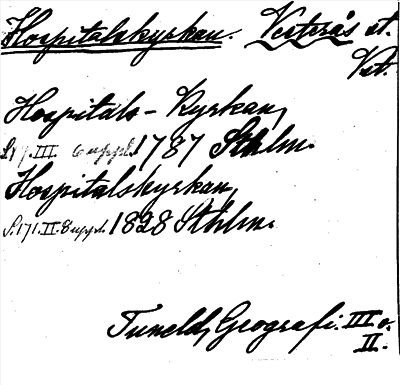 Hospitalskyrkan. Vesterås st.
Vst.
Hospitals-Kyrkan,
III. 6 uppl. 1787 Sthlm.
Hospitalskyrkan,
S. 171. II. 8 uppl. 1828 Sthlm.
Tuneld, Geografi. III o.
II.